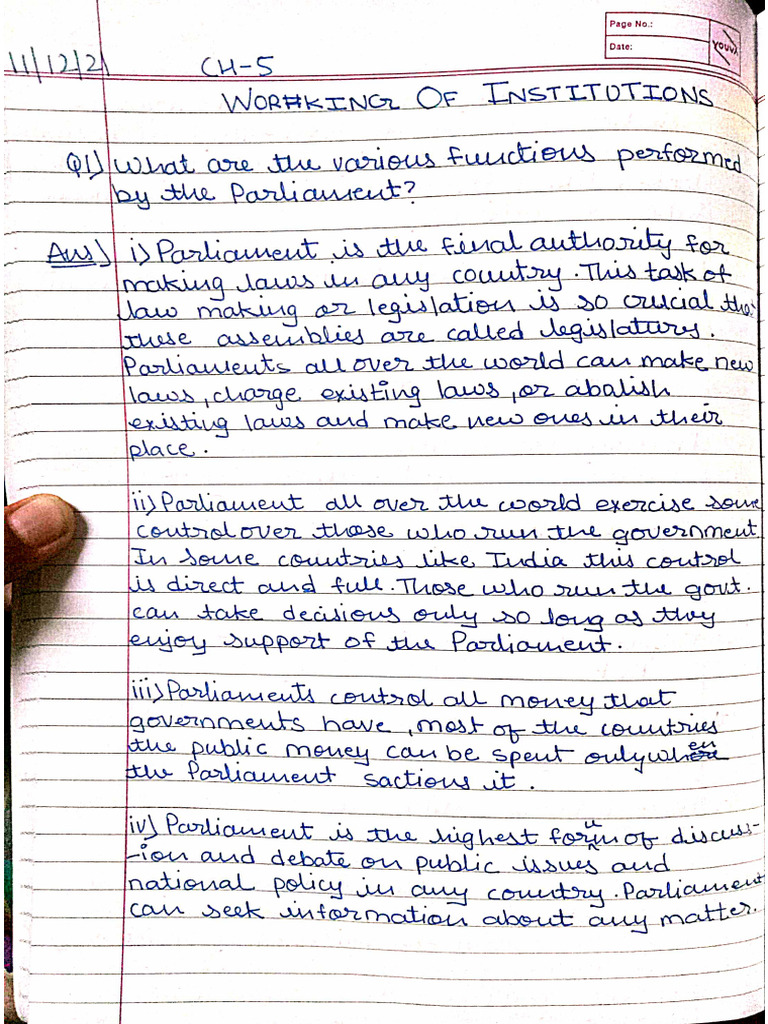 Page No.:
Date:
YOUVA
11/12/21
CH-5
WORKING OF INSTITUTIONS
Q1) What are the various functions performed
by the Parliament?
Ans) i) Parliament is the final authority for
making laws in any country. This task of
law making or legislation is so crucial tha
these assemblies are called legislatures.
Parliaments all over the world can make new
laws, change existing laws, or abalish
existing laws and make new ones in their
place.
ii) Parliament all over the world exercise some
control over those who run the government.
In some countries like India this control
is direct and full. Those who run the govt.
can take decisions only so long as they
enjoy support of the Parliament.
iii) Parliaments control all money that
governments have, most of the countries
the public money can be spent only when
the Parliament sactions it.
iv) Parliament is the highest forum of discuss-
-ion and debate on public issues and
national policy in any country. Parliament
can seek information about any matter.